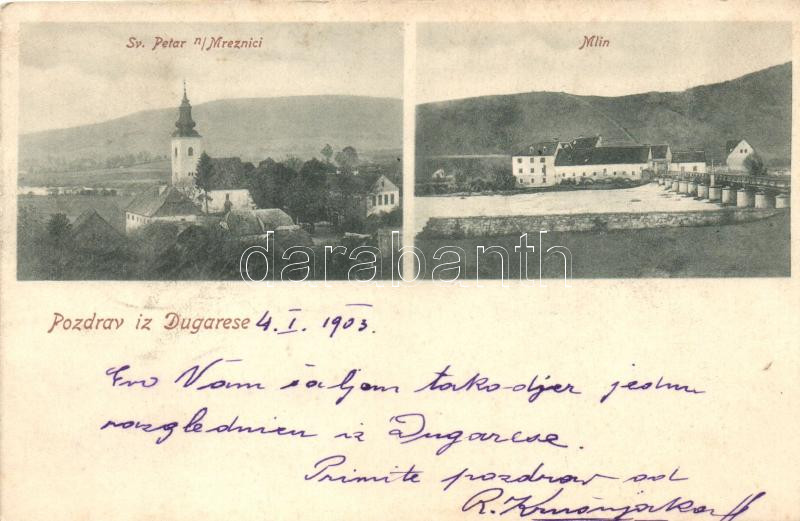 Sv. Petar n/Mreznici
Mlin
darabanth
Pozdrav iz Dugarese 4. I. 1903.
Evo Vam šaljem tako-djer jednu
razglednicu iz Dugarese.
Primite pozdrav od
R.